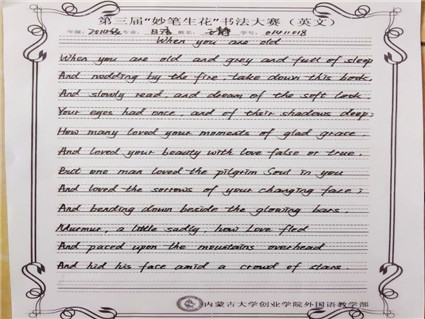 第三届“妙笔生花”书法大赛（英文）
年级：2014级 专业： 姓名： 学号：01411018
When you are old
When you are old and grey and full of sleep
And nodding by the fire take down this book.
And slowly read and dream of the soft look.
Your eyes had once, and of their shadows deep;
How many loved your moments of glad grace.
And loved your beauty with love false or true.
But one man loved the pilgrim Soul in you
And loved the sorrows of your changing face;
And bending down beside the glowing bars.
Murmur, a little sadly how Love fled
And paced upon the mountains overhead
And hid his face amid a crowd of stars.
内蒙古大学创业学院外国语教学部